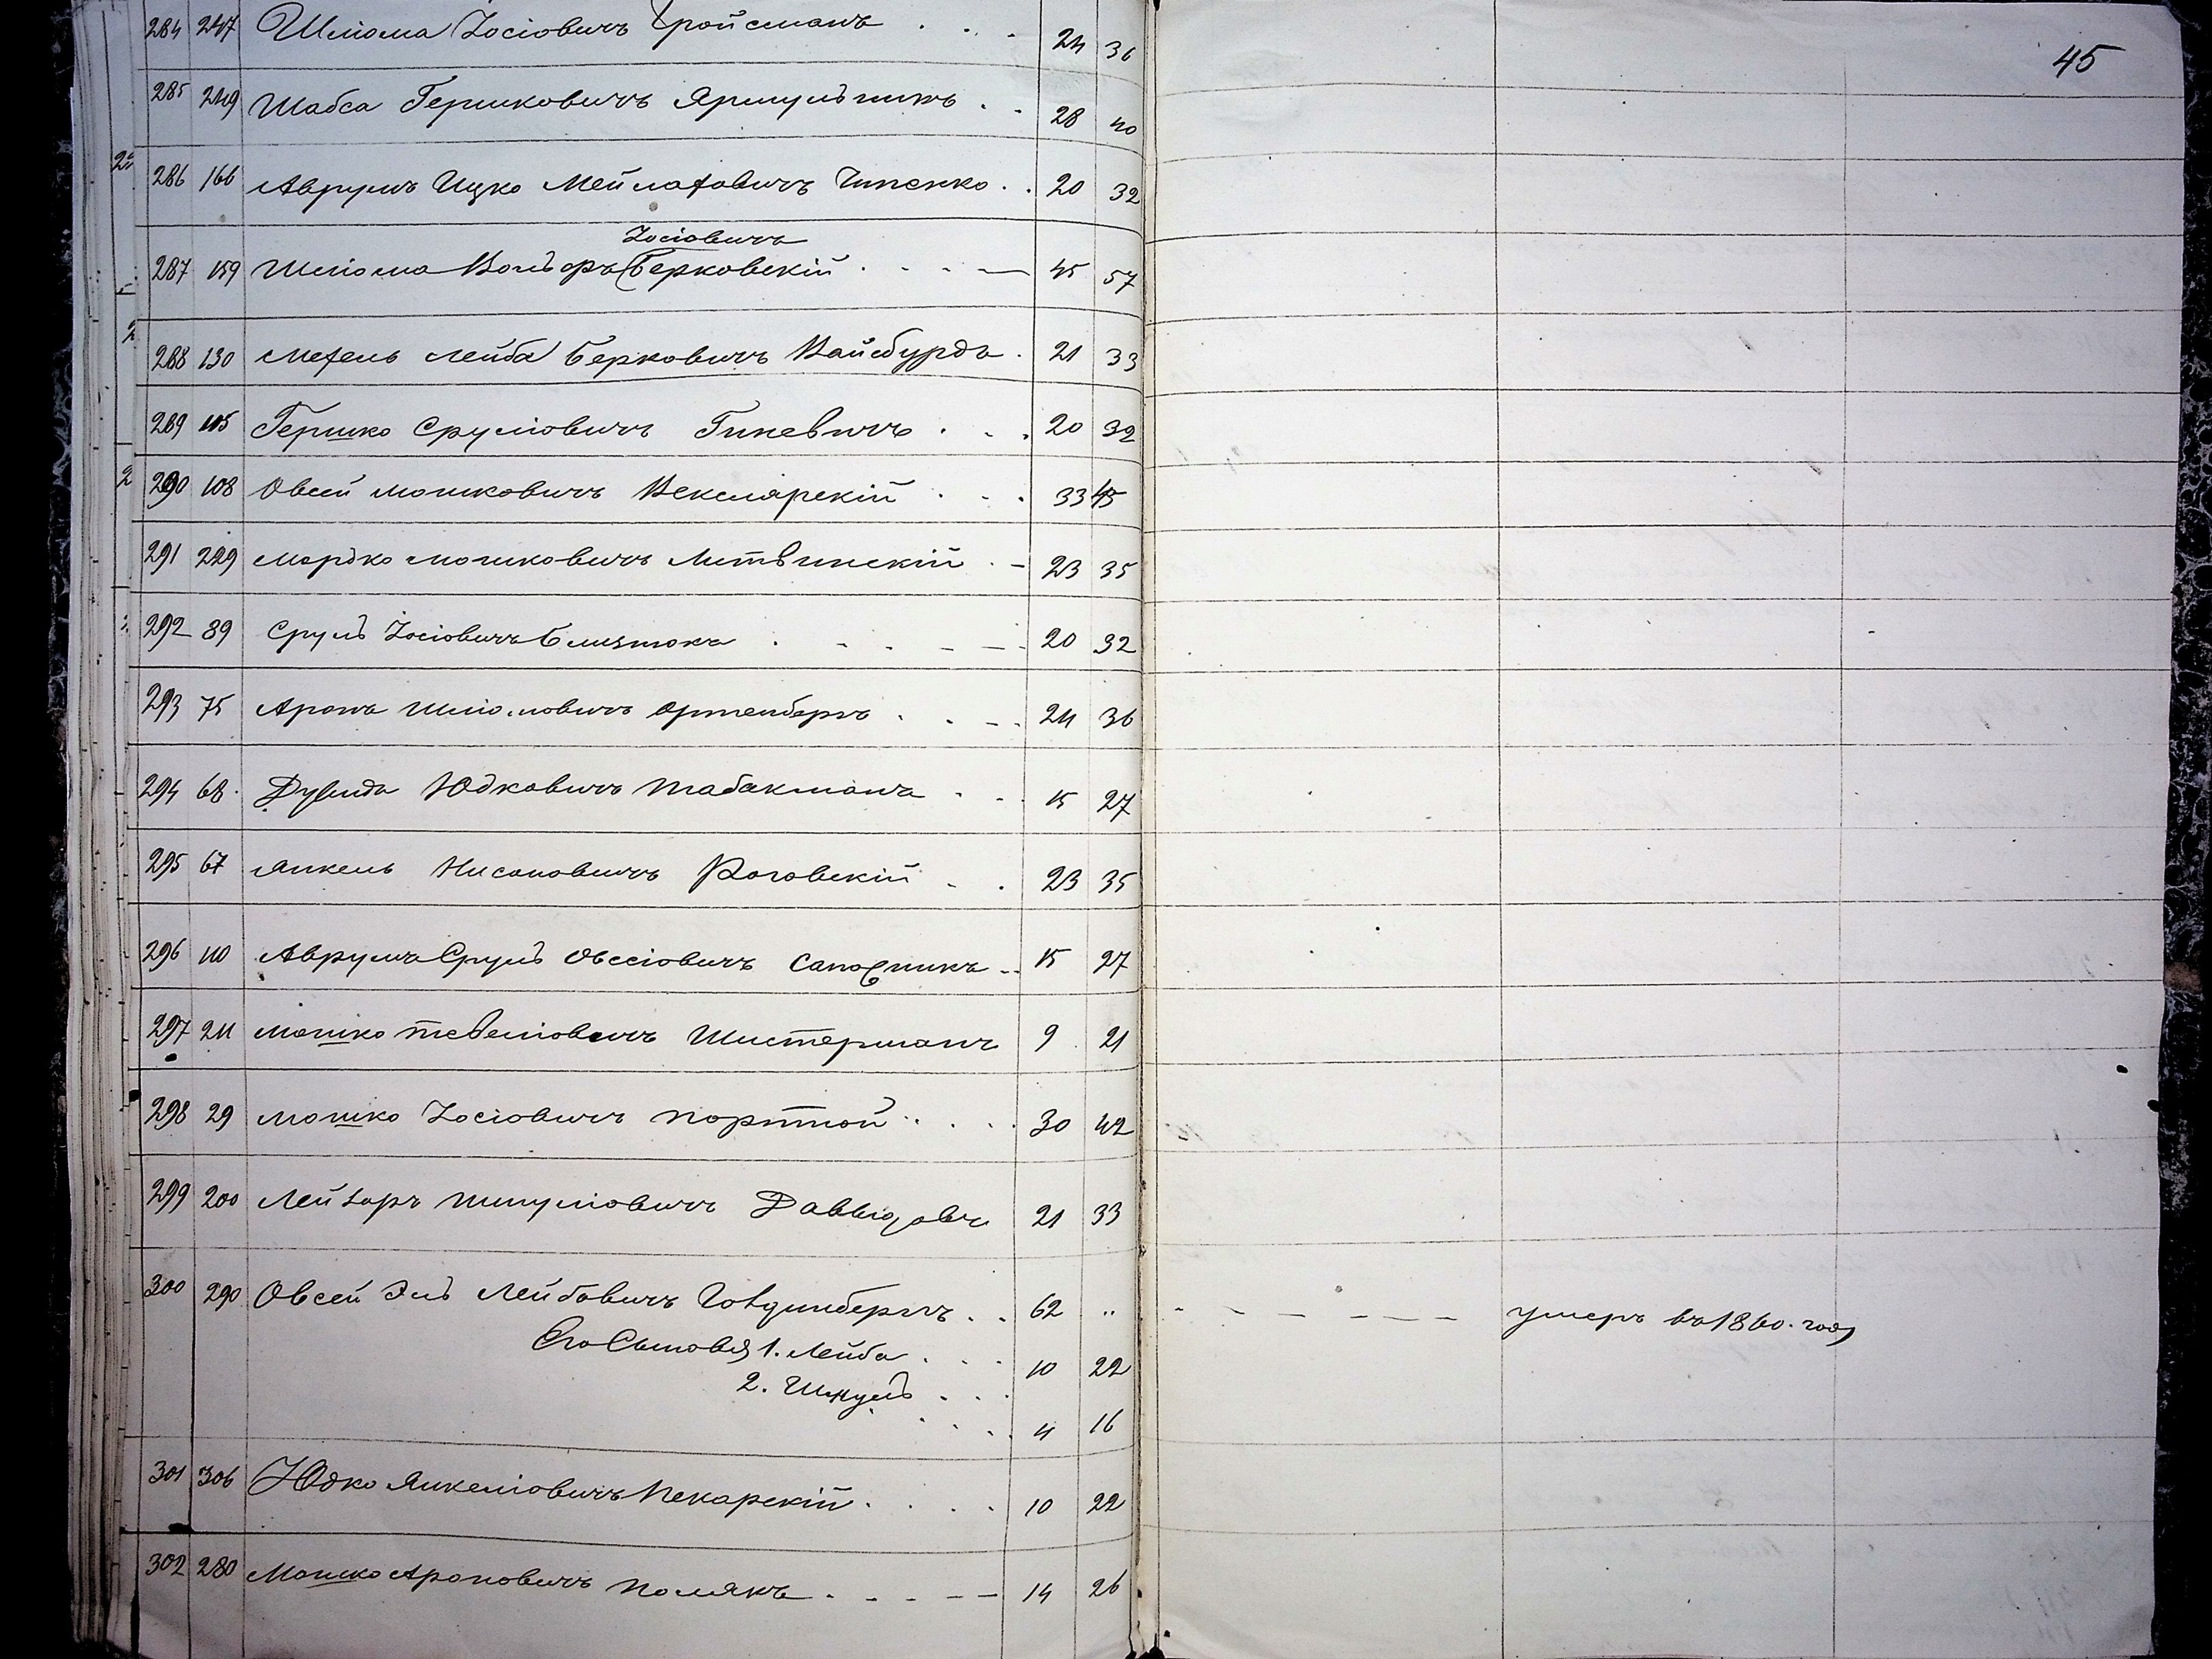 45
284 247 Шліома Іосіовичъ Гройсманъ 24 36
285 249 Шабса Гершковичъ Ярмульникъ 28 40
286 166 Аврумъ Ицко Мейлаховичъ Гипенко 20 32
Іосіовичъ
287 159 Шліома Вольфъ Берковскій 45 57
288 130 Мехель Лейба Берковичъ Вайсбурдъ 21 33
289 105 Гершко Сруліовичъ Гиневичъ 20 32
290 108 Овсей Мошковичъ Векслярскій 33 45
291 229 Мордко Мошковичъ Литвинскій 23 35
292 89 Сруль Іосіовичъ Близнюкъ 20 32
293 75 Аронъ Шліомовичъ Ортенбергъ 24 36
294 68 Дувидъ Юдковичъ Табакманъ 15 27
295 67 Янкель Нисоновичъ Роговскій 23 35
296 110 Аврумъ Сруль Овсіовичъ Сапожникъ 15 27
297 211 Мошко Тевеліовичъ Шистерманъ 9 21
298 29 Мошко Іосіовичъ Портной 30 42
299 200 Лейзоръ Шмуліовичъ Давыдовъ 21 33
300 290 Овсей Эль Лейбовичъ 62 " умеръ въ 1860. году
Его Сыновья 1. Лейба 10 22
2. Шмуль
4 16
301 306 Юдко Янкеліовичъ Пекарскій 10 22
302 280 Мошко Ароновичъ Полякъ 14 26